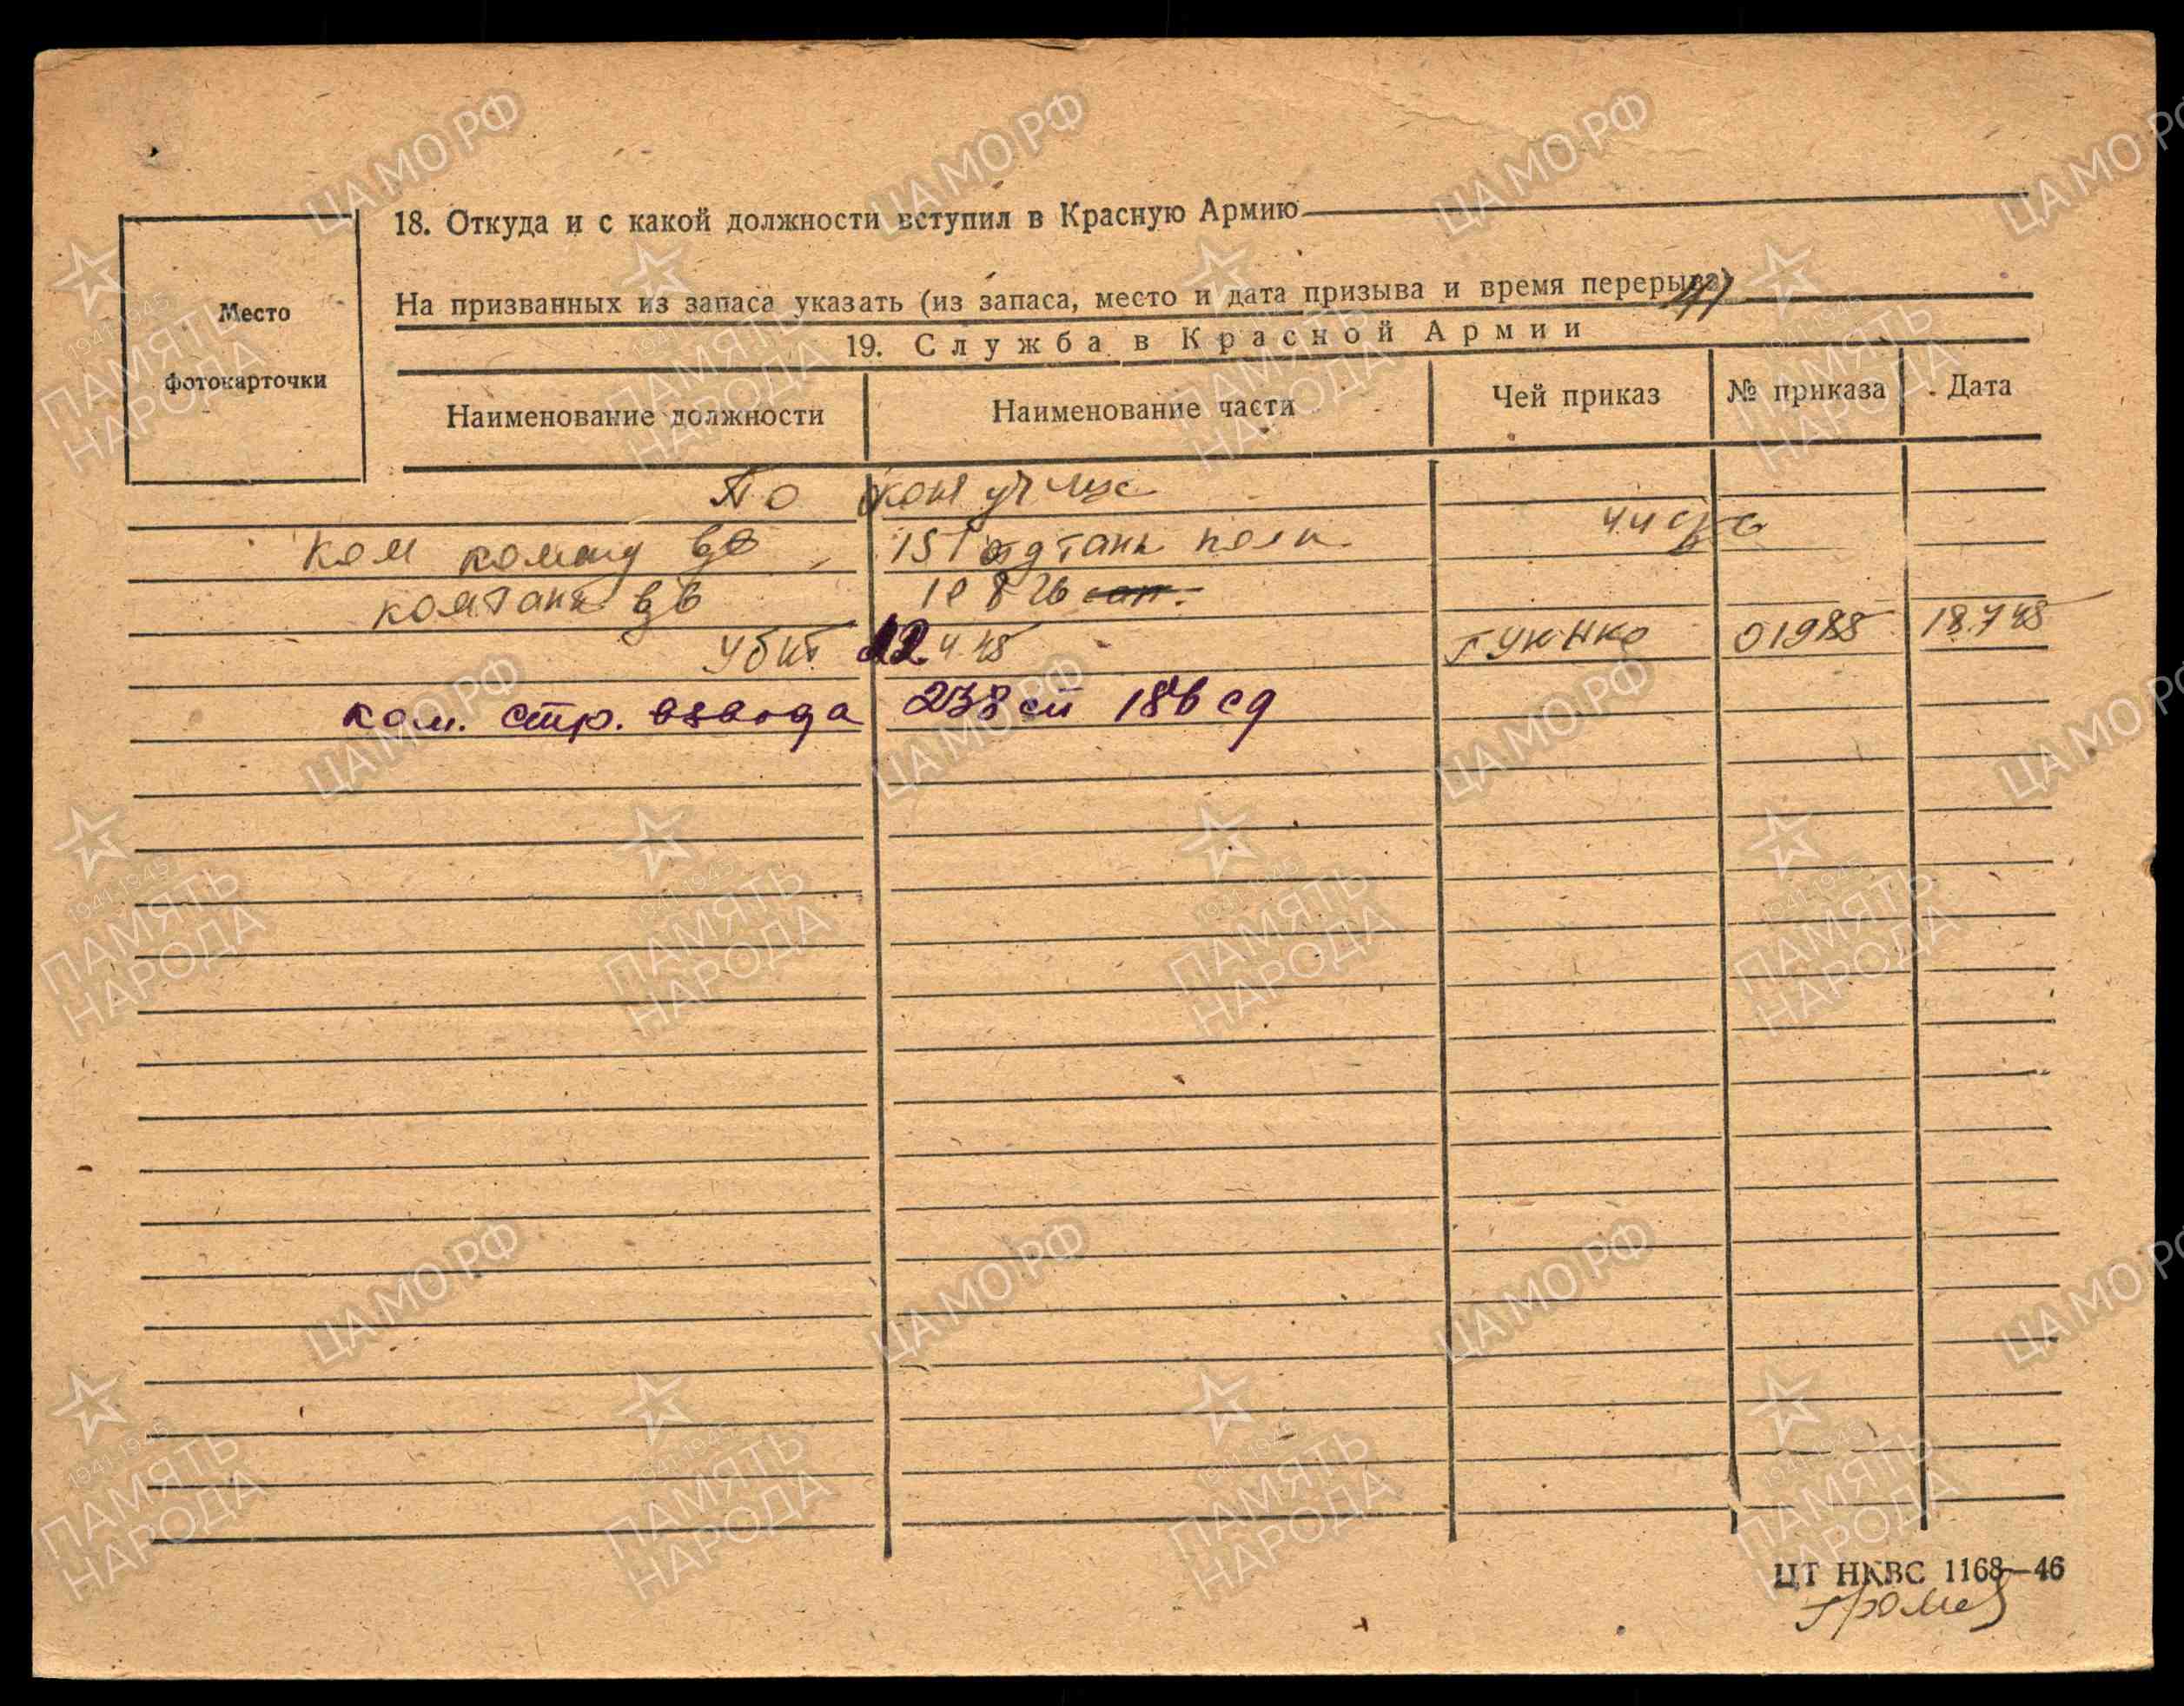 18. Откуда и с какой должности вступил в Красную Армию
Место
фотокарточки
На призванных из запаса указать (из запаса, место и дата призыва и время перерыва)
19. Служба в Красной Армии
Наименование должности Наименование части Чей приказ № приказа Дата
По
ком команд
151 отд танк полк
убит 12 4 45 ГУК НКО 01988 18.7 45
ком. стр. взвода 238 сп 186 сд
ЦТ НКВС 1168—46
ЦАМО.РФ
1941-1945
ПАМЯТЬ
НАРОДА